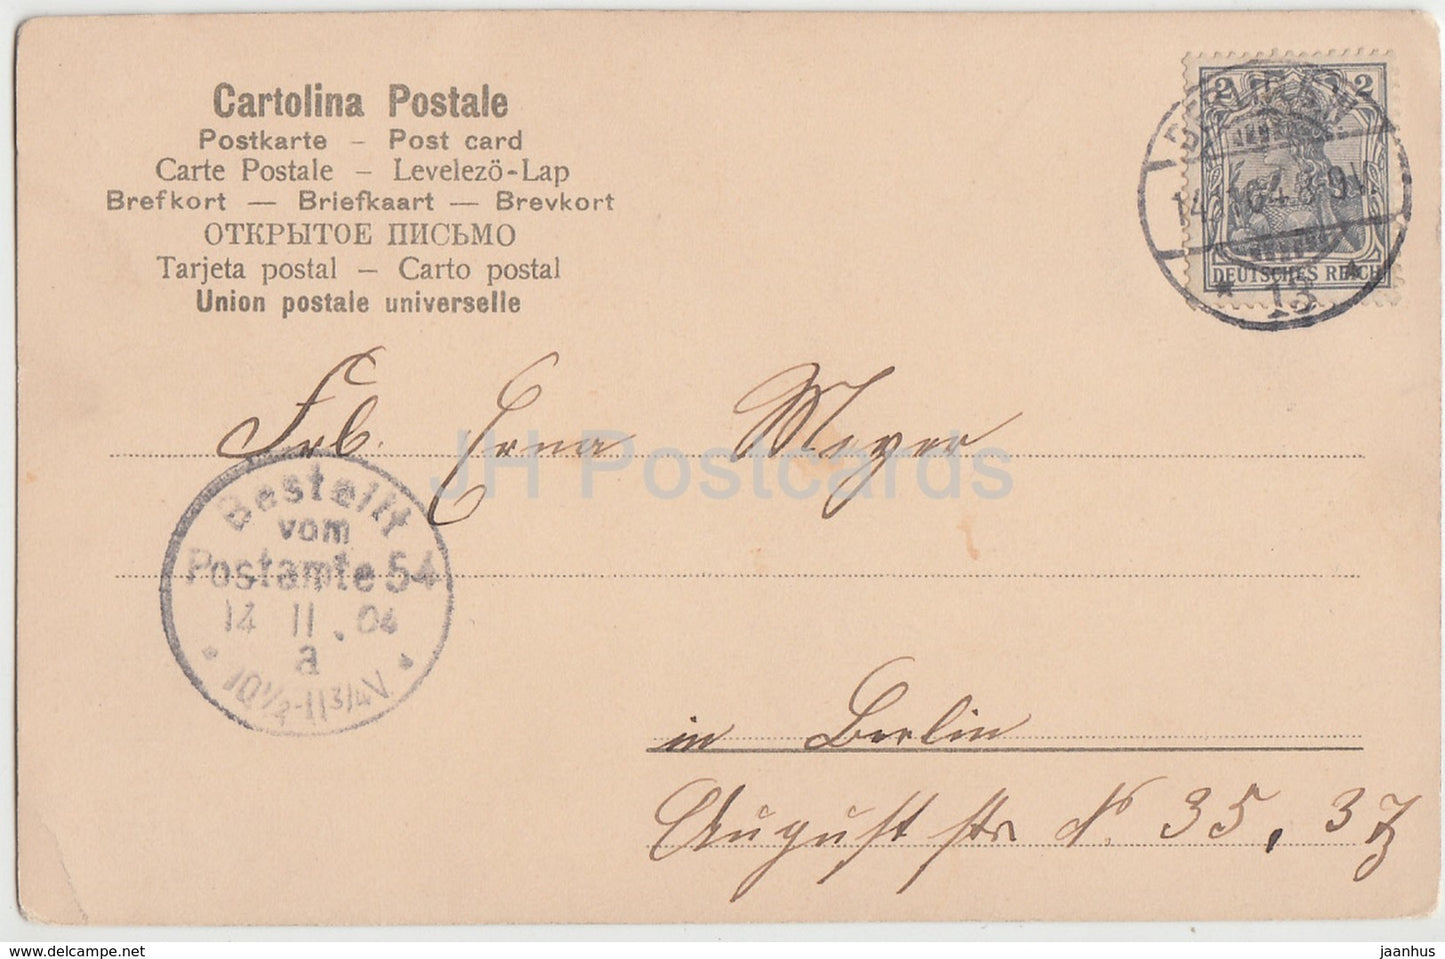 Cartolina Postale
Postkarte – Post card
Carte Postale – Levelező-Lap
Brefkort — Briefkaart — Brevkort
ОТКРЫТОЕ ПИСЬМО
Tarjeta postal – Carto postal
Union postale universelle
2 2
DEUTSCHES REICH
BERLIN
* 13 *
Frl. Erna Meyer
JH Postcards
Bestellt
vom
Postamte 54
14 11 . 04
a
* 10 1/4-11 3/4 V. *
in Berlin
August str No. 35,
delcampe.net
jaanhus